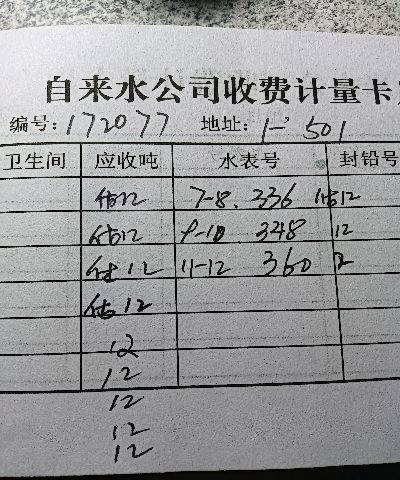 自来水公司收费计量卡
编号: 172077 地址: 1-3 501
卫生间 应收吨 水表号 封铅号
估12 7-8. 336 估12
估12 9-10 348 12
估12 11-12 360 12
估12
12
12
12
12
12